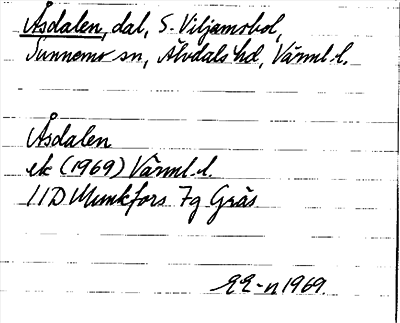 Åsdalen, dal, S. Viljamsbol,
Sunnemo sn, Älvdals hd, Värml. l.
Åsdalen
ek (1969) Värml. l.
11D Munkfors 7g Gräs
EE-n 1969.